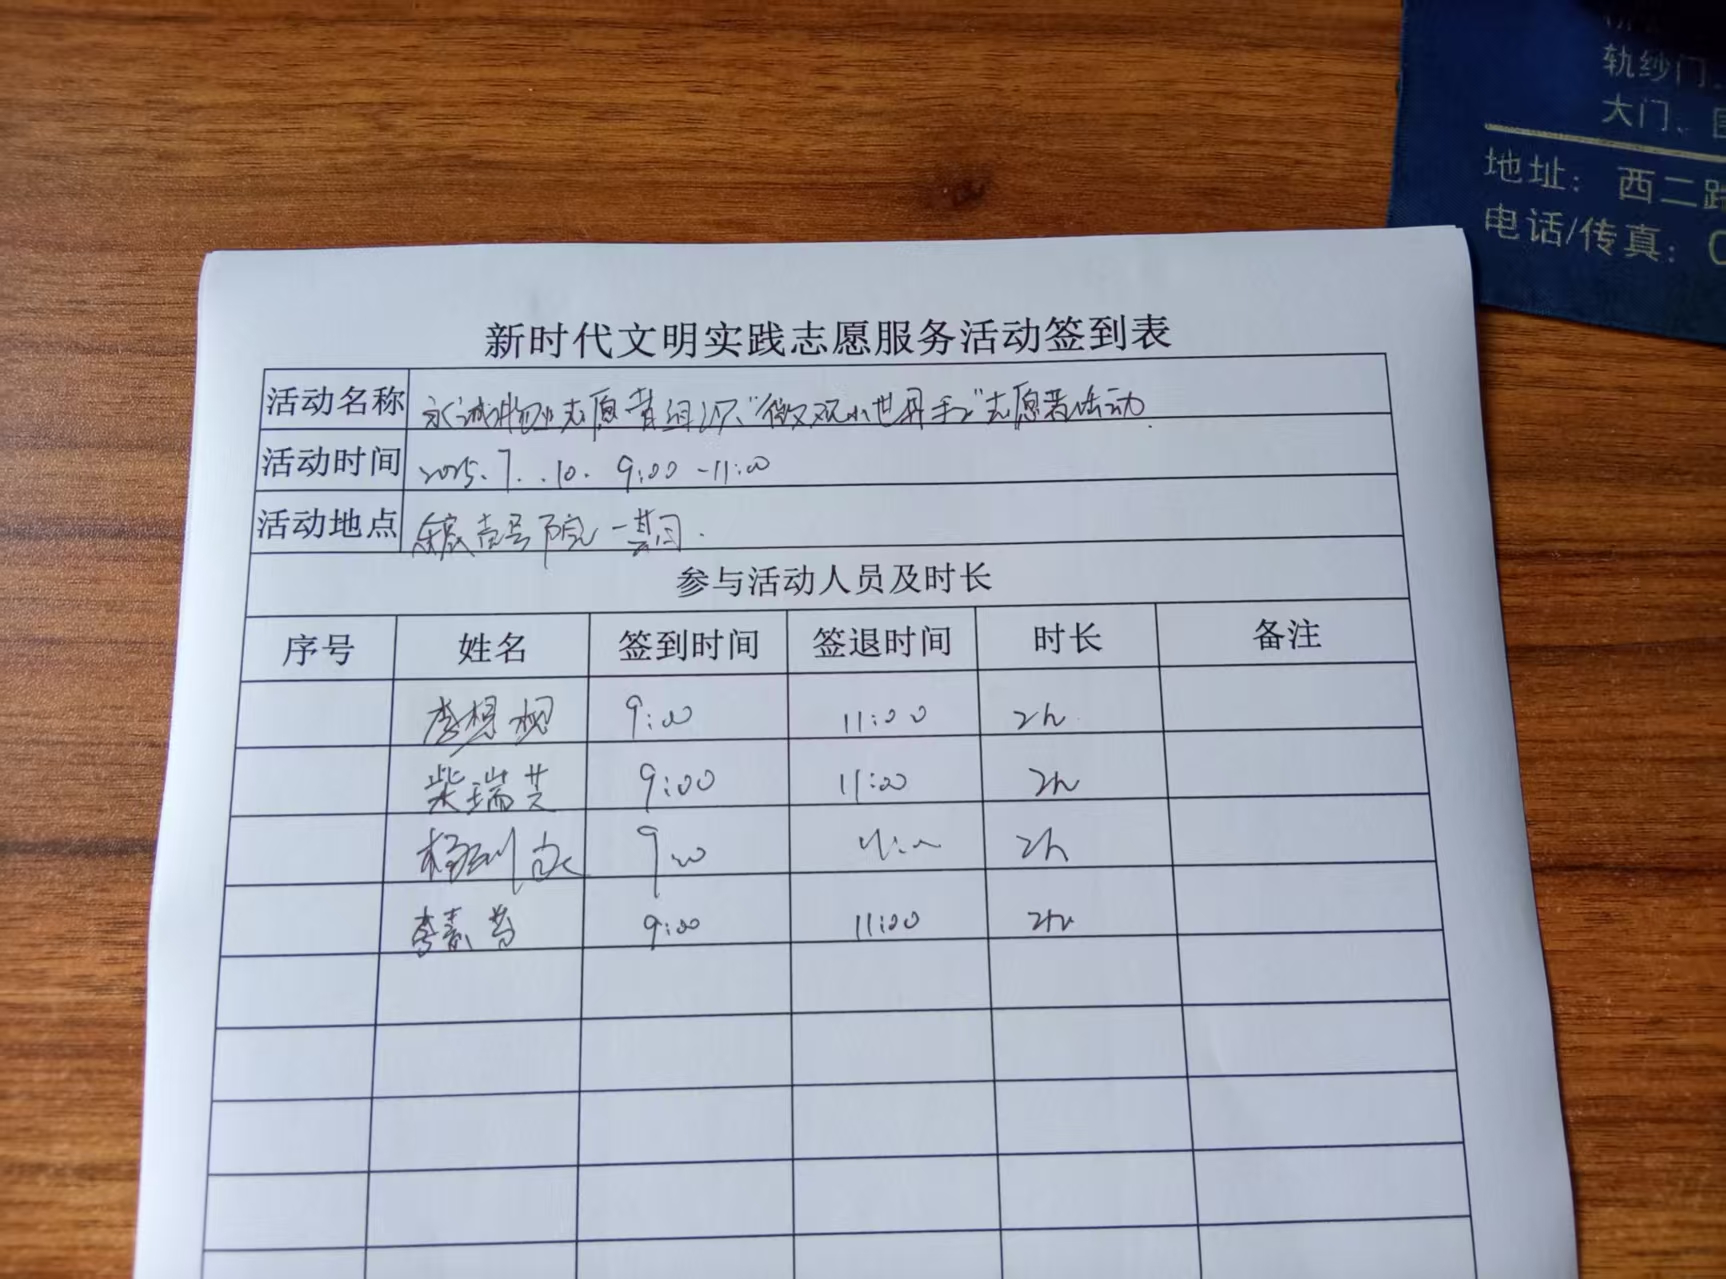 轨纱门、
大门、
地址：西二路
电话/传真：0
新时代文明实践志愿服务活动签到表
活动名称 永诚物业志愿者组织"微观小世界 "志愿者活动.
活动时间 2025.7.10. 9:00-11:00
活动地点 壹号院一期.
参与活动人员及时长
序号 姓名 签到时间 签退时间 时长 备注
李想 9:00 11:00 2h
柴瑞芝 9:00 11:00 2h
杨 9:00 11:00 2h
李素芳 9:00 11:00 2h